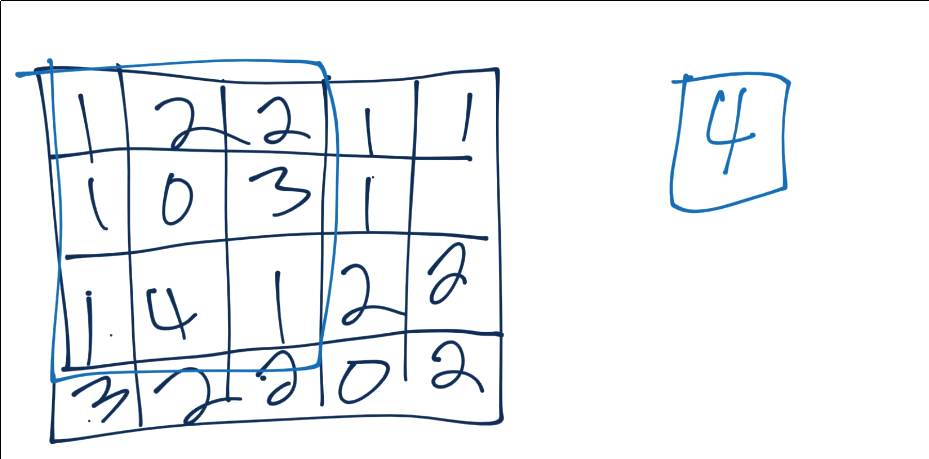 1 2 2 1 1
1 0 3 1
1 4 1 2 2
3 2 2 0 2
4